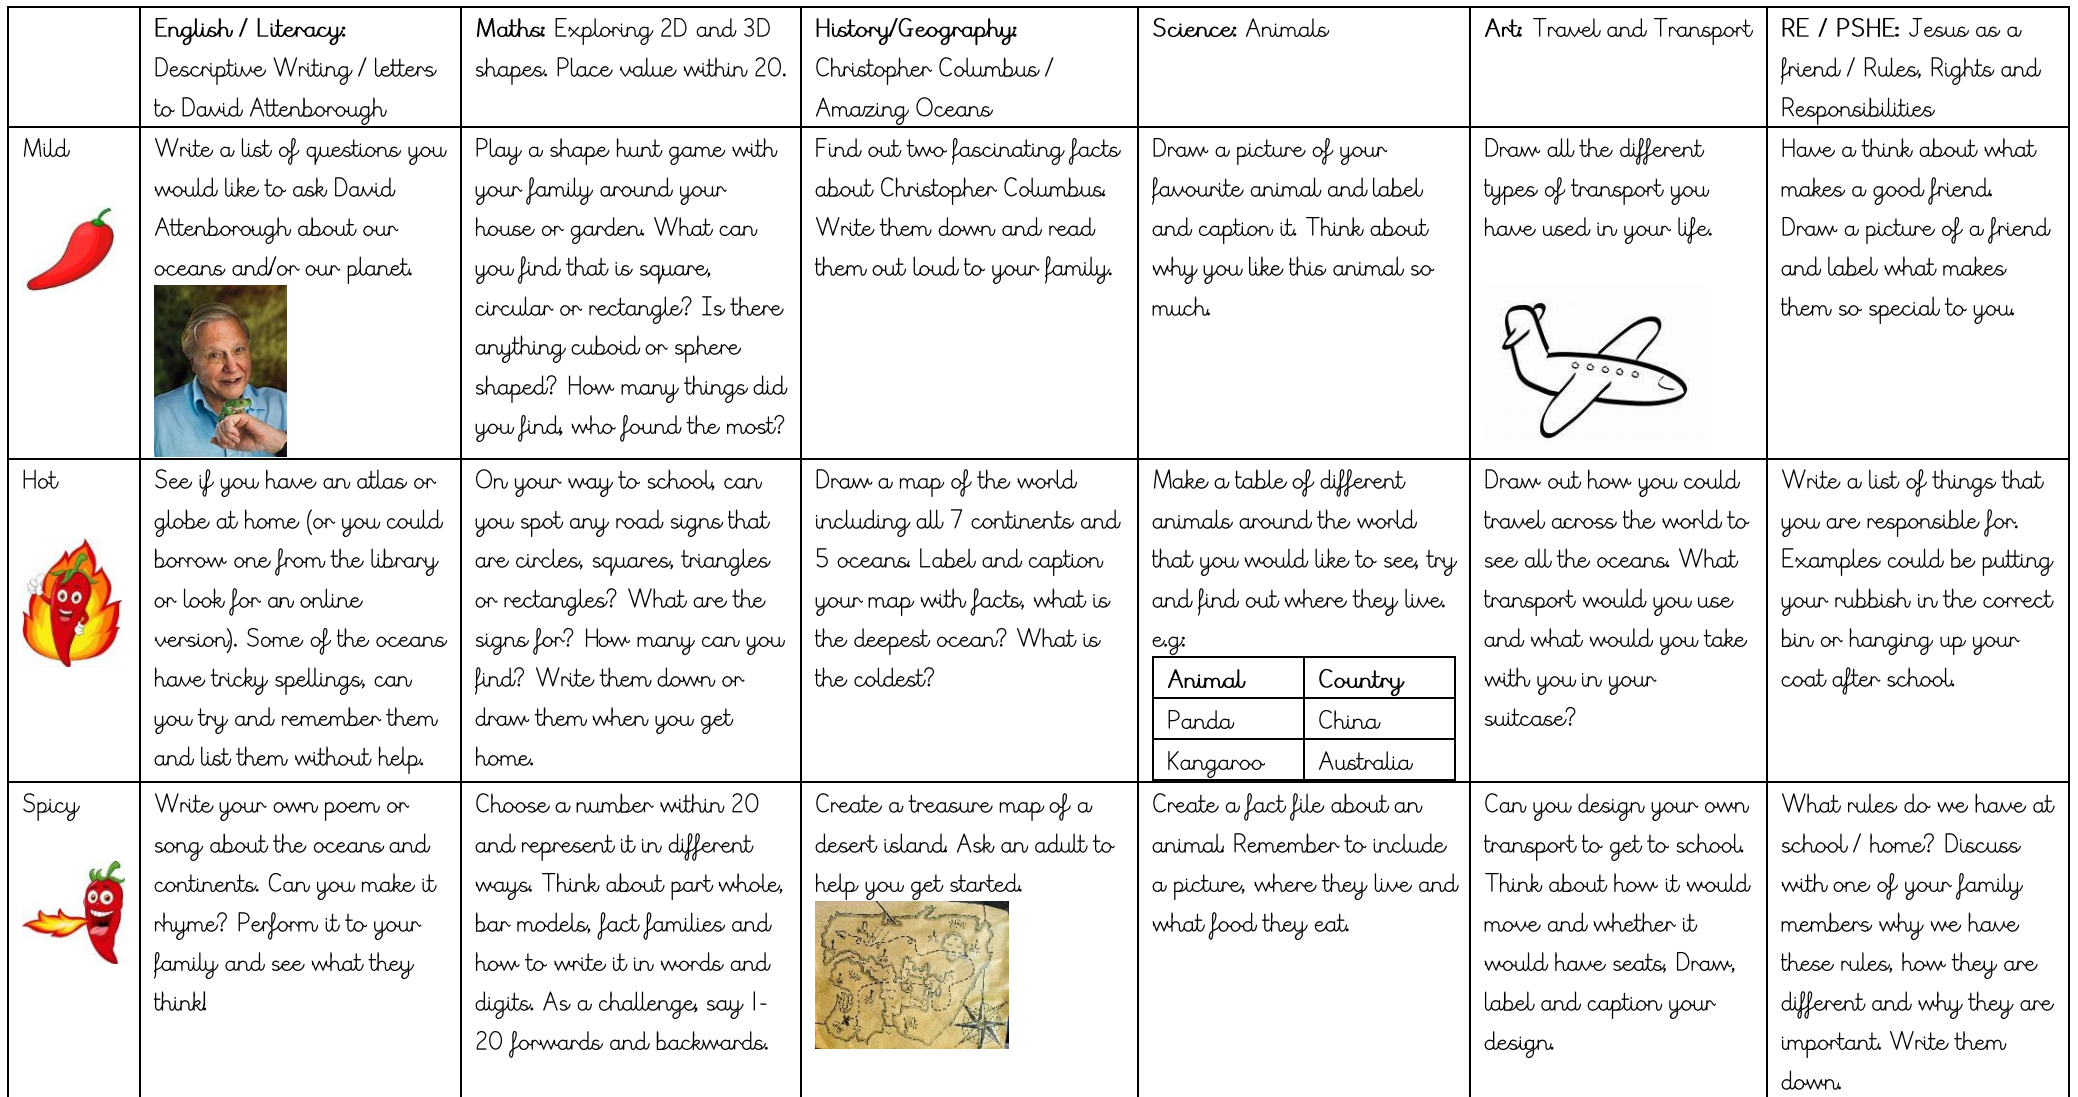 English / Literacy:
Descriptive Writing / letters
to David Attenborough
Maths: Exploring 2D and 3D
shapes. Place value within 20.
History/Geography:
Christopher Columbus /
Amazing Oceans
Science: Animals
Art: Travel and Transport
RE / PSHE: Jesus as a
friend / Rules, Rights and
Responsibilities
Mild
Write a list of questions you
would like to ask David
Attenborough about our
oceans and/or our planet.
Play a shape hunt game with
your family around your
house or garden. What can
you find that is square,
circular or rectangle? Is there
anything cuboid or sphere
shaped? How many things did
you find, who found the most?
Find out two fascinating facts
about Christopher Columbus.
Write them down and read
them out loud to your family.
Draw a picture of your
favourite animal and label
and caption it. Think about
why you like this animal so
much.
Draw all the different
types of transport you
have used in your life.
Have a think about what
makes a good friend.
Draw a picture of a friend
and label what makes
them so special to you.
Hot
See if you have an atlas or
globe at home (or you could
borrow one from the library
or look for an online
version). Some of the oceans
have tricky spellings, can
you try and remember them
and list them without help.
On your way to school, can
you spot any road signs that
are circles, squares, triangles
or rectangles? What are the
signs for? How many can you
find? Write them down or
draw them when you get
home.
Draw a map of the world
including all 7 continents and
5 oceans. Label and caption
your map with facts, what is
the deepest ocean? What is
the coldest?
Make a table of different
animals around the world
that you would like to see, try
and find out where they live.
e.g:
Animal Country
Panda China
Kangaroo Australia
Draw out how you could
travel across the world to
see all the oceans. What
transport would you use
and what would you take
with you in your
suitcase?
Write a list of things that
you are responsible for.
Examples could be putting
your rubbish in the correct
bin or hanging up your
coat after school.
Spicy
Write your own poem or
song about the oceans and
continents. Can you make it
rhyme? Perform it to your
family and see what they
think!
Choose a number within 20
and represent it in different
ways. Think about part whole,
bar models, fact families and
how to write it in words and
digits. As a challenge, say 1-
20 forwards and backwards.
Create a treasure map of a
desert island. Ask an adult to
help you get started.
Create a fact file about an
animal. Remember to include
a picture, where they live and
what food they eat.
Can you design your own
transport to get to school.
Think about how it would
move and whether it
would have seats, Draw,
label and caption your
design.
What rules do we have at
school / home? Discuss
with one of your family
members why we have
these rules, how they are
different and why they are
important. Write them
down.